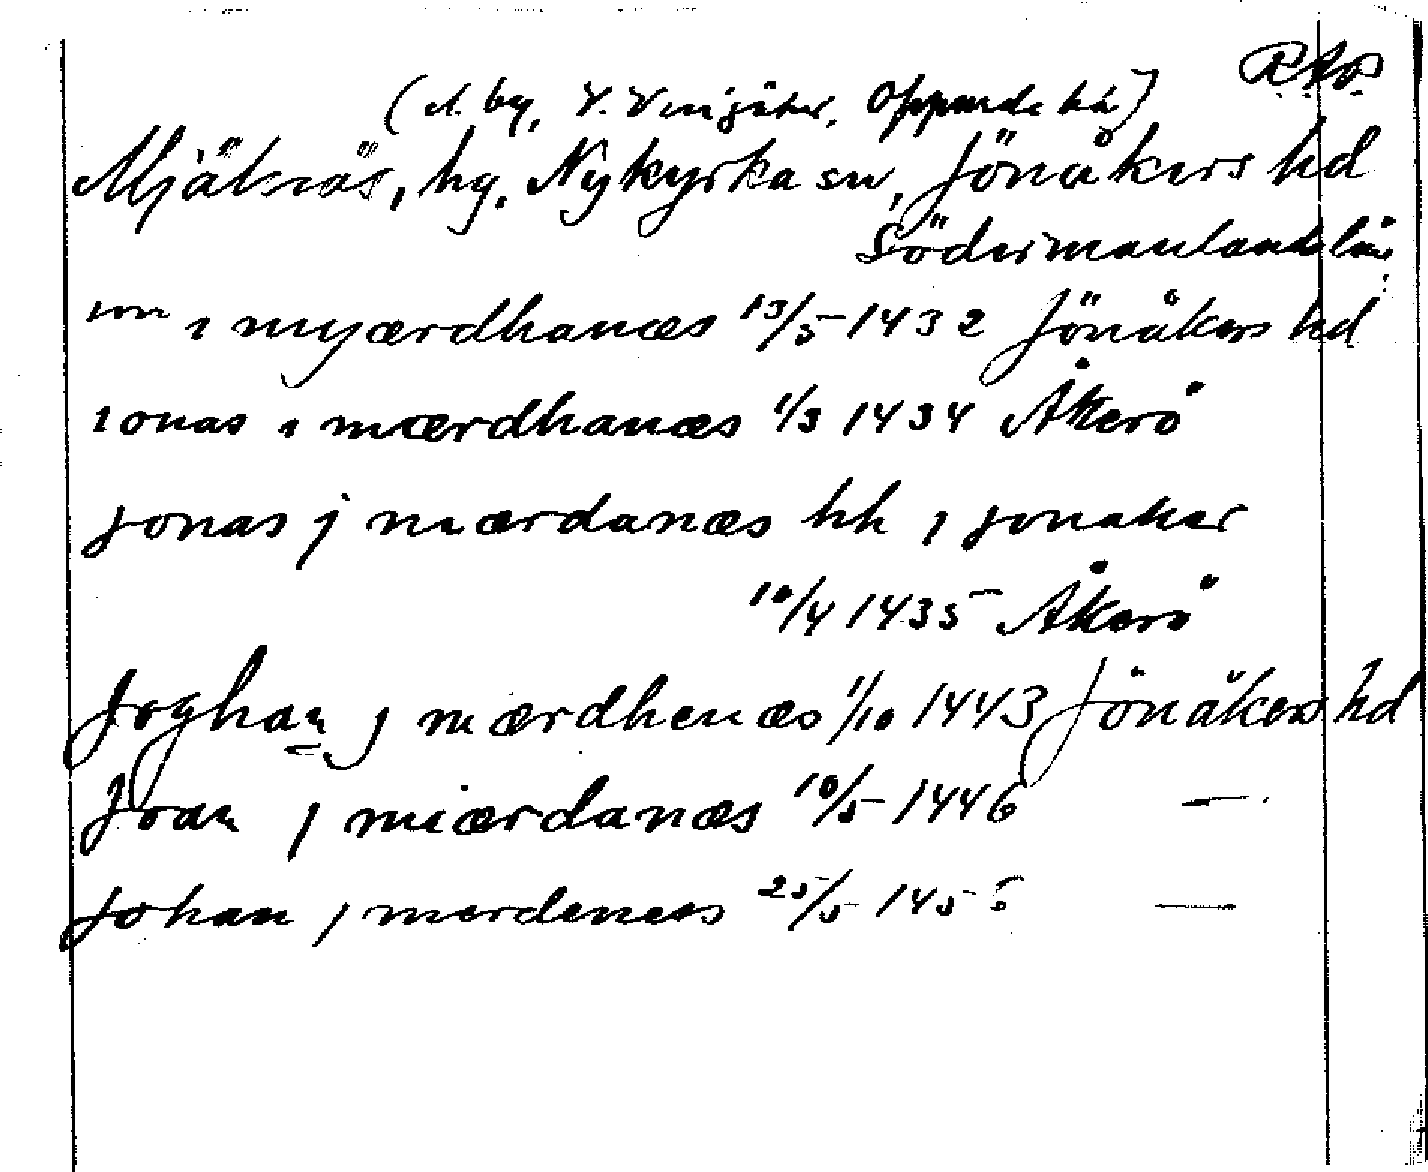 RAp
(d. by, V. Vingåker, Oppunda hd)
Mjälnäs, hg, Nykyrka sn, Jönåkers hd
Södermanlands län
ion ı myærdhanæs 13/5 1432 Jönåkers hd
ıonas ı mærdhanæs 1/3 1434 Åkerö
jonas j mærdanæs hh ȷ jonaker
10/4 1435 Åkerö
Joghan j mærdhenæs 1/10 1443 Jönåkers hd
Joan j miærdanæs 10/5 1446 —
Johan j merdenæs 25/5 145 —